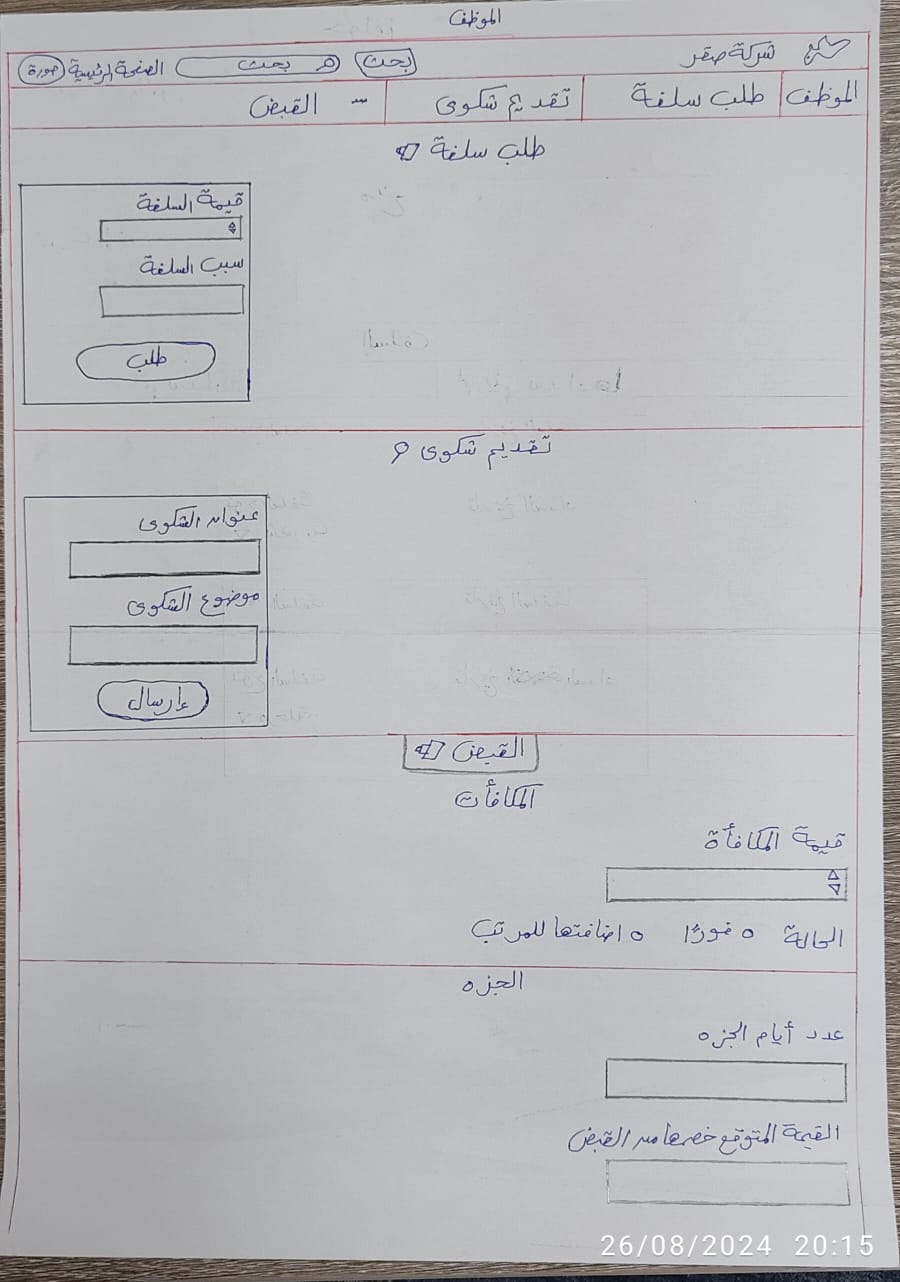 الموظف
شركة صقر بحث بحث الصفحة الرئيسية صورة
الموظف طلب سلفة تقديم شكوى القبض
طلب سلفة
قيمة السلفة
سبب السلفة
طلب
تقديم شكوى
عنوان الشكوى
موضوع الشكوى
إرسال
القبض
المكافأت
قيمة المكافأة
الحالة فورًا اضافتها للمرتب
الجزه
عدد أيام الجزه
القيمة المتوقع خصمها من القبض
26/08/2024 20:15